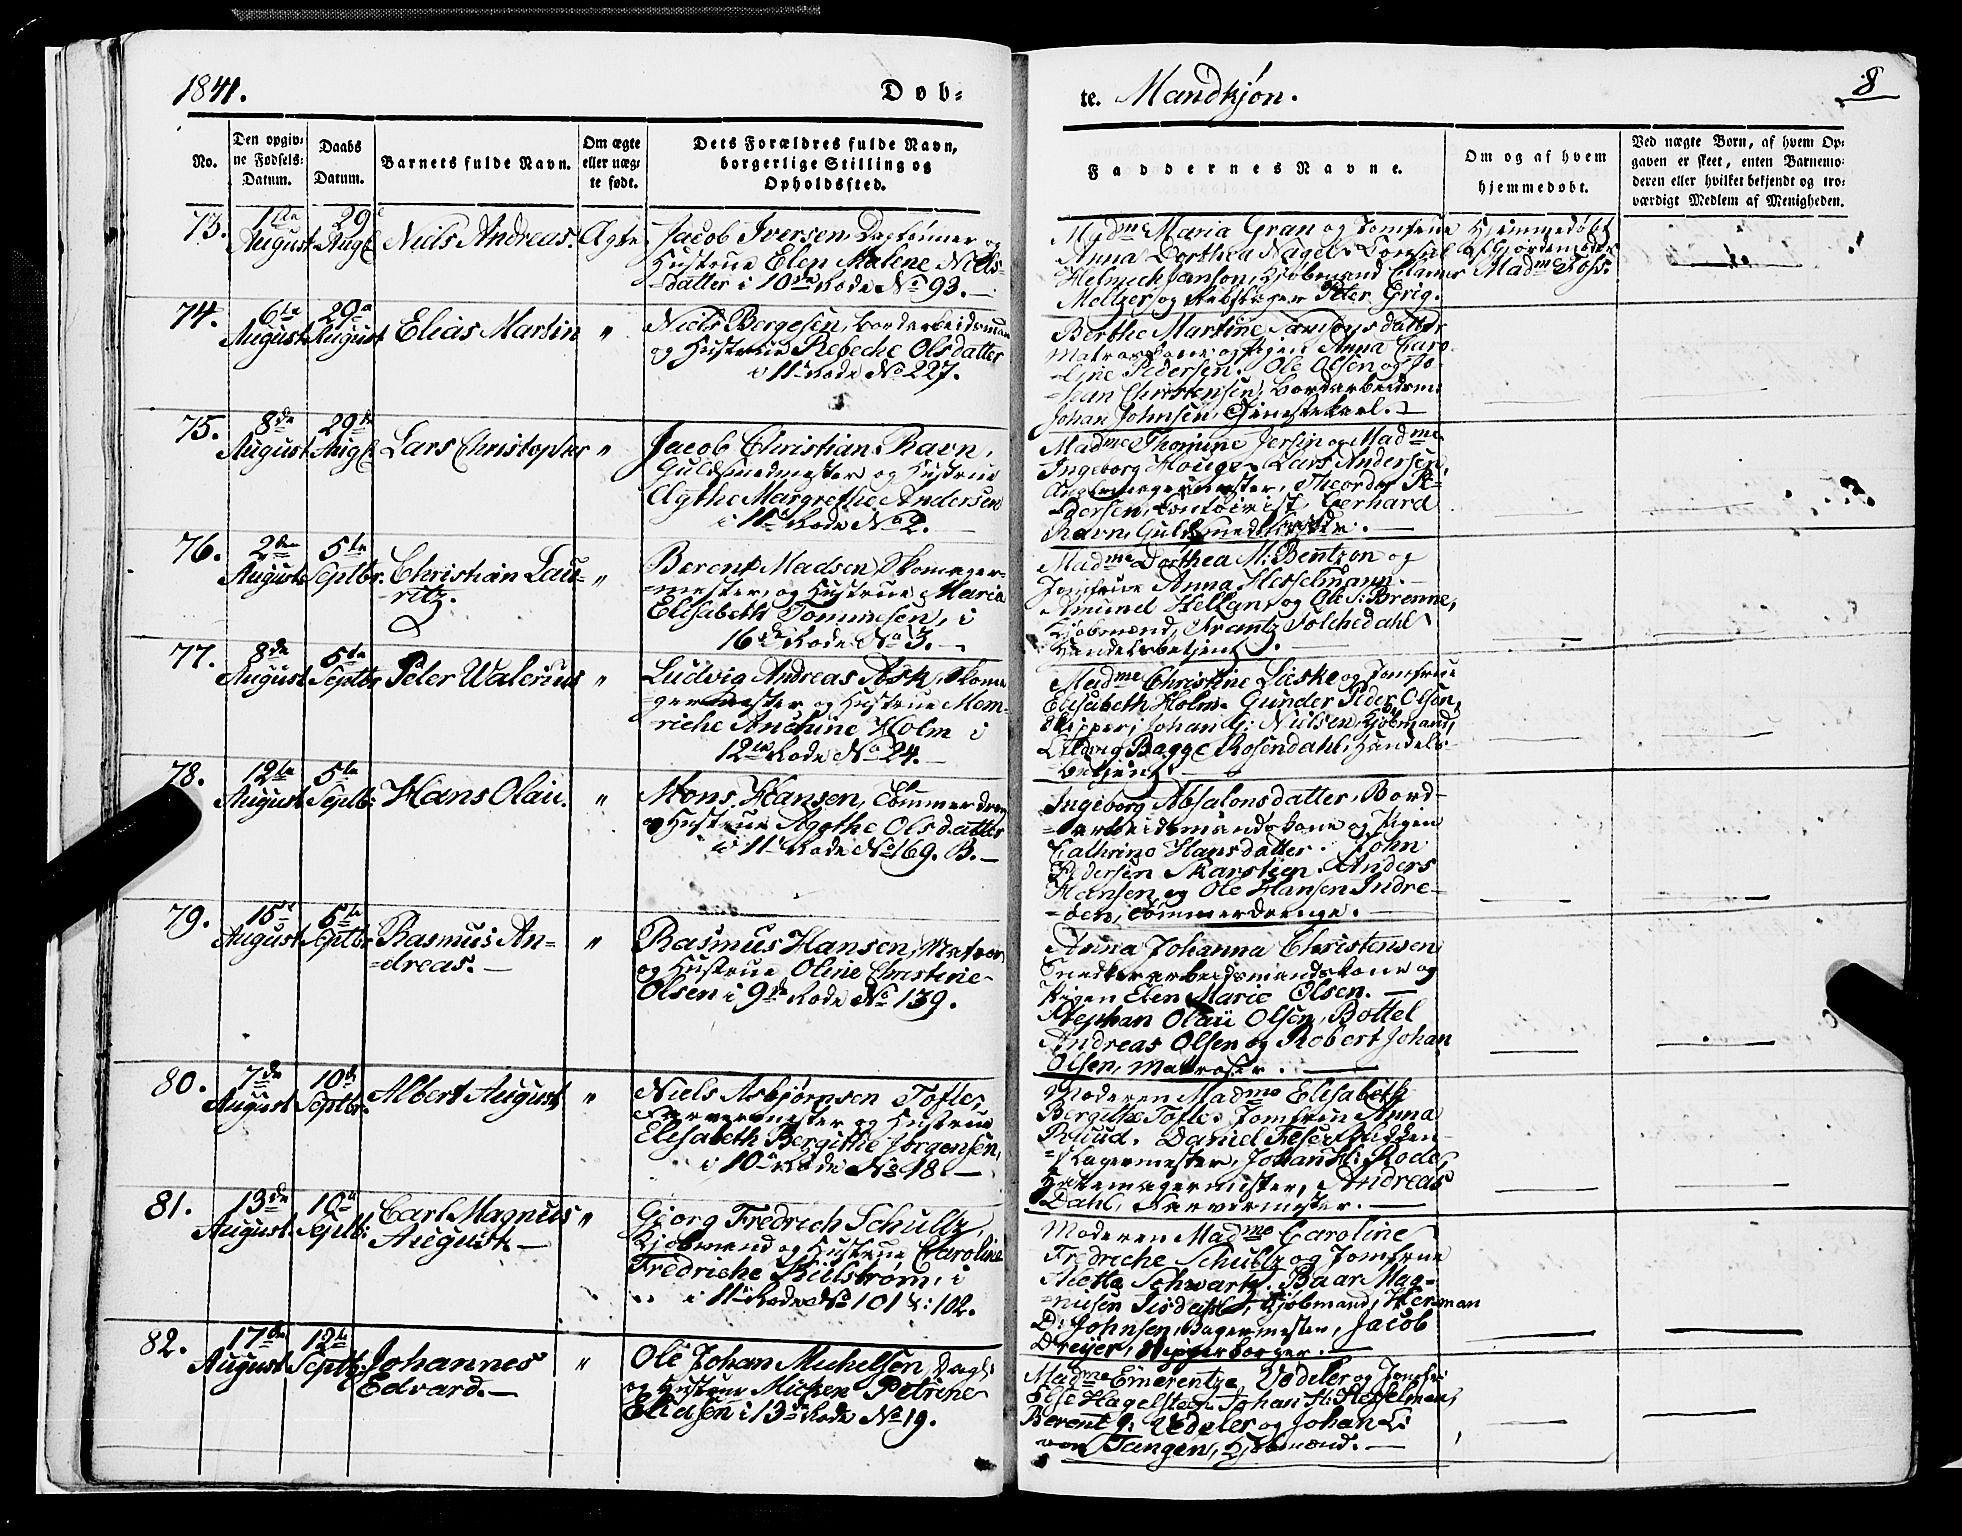 1841.
Døb-
te. Mandkjøn.
8
No.
Den opgiv-
ne Fødsels-
Datum.
Daabs
Datum.
Barnets fulde Navn.
Om ægte
eller uæg-
te født.
Dets Forældres fulde Navn,
borgerlige Stilling og
Opholdssted.
Faddernes Navne.
Om og af hvem
hjemmedøbt.
Ved uægte Børn, af hvem Op-
gaven er skeet, enten Barnemo-
deren eller hvilket bekjendt og tro-
værdigt Medlem af Menigheden.
73.
1ste
August
29de
Augt
Niels Andreas.
Ægte.
Jacob Iversen, Dagl&oslash;nner og
Hustrue Elen Malene Niels-
-datter i 10de Rode No 93.
Madme Maria Gran og Jomfrue
Anna Dorthea Nagel. Consul
Helmich Janson, Kjøbmænd Clamer
Meltzer og Rebslager Peter Grig.
Hjemmedøbt
af Gjordemoder
Madme Foss.
74.
6te
August
29de
August
Elias Martin
"
Niels Bergesen, Bordarbeidsmand
og Hustrue Rebeche Olsdatter
i 11te Rode No 227.
Berthe Martine datter
Matroskone og Pigen Anna Caro-
-line Pedersen. Ole Olsen og Jo-
-han Christensen, Bordarbeidsm:
Johan Johnsen, Tjenestekarl.
75.
8de
August
29de
Augt
Lars Christopher
"
Jacob Christian Ravn,
Guldsmedmester og Hustrue
Agthe Margrethe Andersen
i 11te Rode No 2.
Madme Thomine Jersin og Madme
Ingeborg Houge. Lars Andersen,
mester, Theordor Pe-
-dersen, Contoirist, Gerhard
Ravn, Guldsmed
76.
2den
August
5te
Septbr.
Christian Lau-
-ritz.
"
Berent Madsen, Skomager-
-mester, og Hustrue Maria
Elisabeth Tommesen, i
16de Rode No 3.
Madme Dorthea M: Bentzon og
Jomfrue Anna Hesselmann.
Amund Hellan, og Ole S: Brenne,
Kjøbmænd, Frantz Tolchedahl
Handelsbetjent.
77.
8de
August
5te
Septbr
Peter Walerius
"
Ludvig Andreas Ask, Skoma-
-germester og Hustrue Mem-
riche Anchine Holm i
12te Rode No 24.
Madme Christine Læske og Jomfrue
Elisabeth Holm. Gunder Peder Olsen,
Skipper, Johan G: Nielsen, Kjøbmand,
Ludvig Bagge Rosendahl, Handels-
betjent.
78.
12te
August
5te
Septbr:
Hans Olai.
"
Mons Hansen, Tømmerdreng
og Hustrue Agothe Olsdatter
i 11te Rode No 169. B.
Ingeborg Absalonsdatter, Bord-
-arbeidsmandskone og Pigen
Cathrine Hansdatter. John
Pedersen Skarstien. Anders
Hansen, og Ole Hansen Indre-
-den, Tømmerdrenge.
79.
15de
August
5te
Septbr
Rasmus An-
-dreas.
"
Rasmus Hansen, Matros
og Hustrue Oline Christine
Olsen i 9de Rode No 139.
Anna Johanna Christensen
Snedkerarbeidsmandskone og
Pigen Elen Marie Olsen.
Stephan Olaü Olsen, Bottel
Andreas Olsen og Robert Johan
Olsen, Matroser.
80.
7de
August
10de
Septbr.
Albert August
"
Niels Asbjørnsen Tofle,
Farvermester og Hustrue
Elisabeth Bergithe Jørgensen,
i 10de Rode No 18.
Moderen Madme Elisabeth
Bergithe Tofle. Jomfrue Anna
Daniel Skidden-
-mester, Johan H: Rode,
Hattemagermester, Andreas
Dahl, Farvermester.
81.
13de
August
10de
Septbr:
Carl Magnus
August.
"
Gjorg Fredrich Schultz,
Kjøbmand og Hustrue Caroline
Fredriche Kielstrøm, i
i 11te Rode No 101 & 102.
Moderen Madme Caroline
Fredriche Schultz og Jomfrue
Schwartz. Baar Mag-
-nusen Kjøbmand, Herman
D: Johnsen, Bagermester, Jacob
Dreyer, Skipperborger.
82.
17de
August
12te
Septbr:
Johannes
Edvard.
"
Ole Johan Michelsen, Dagl:
og Hustrue Michen Petrine
Eliesen i 13de Rode No 19.
Madme Emerentze Vedeler og Jomfr:
Else Hagelsteen. Johan H: Hesselman,
Berent J: Vedeler og Johan L:
von Tangen, Kjøbmænd.